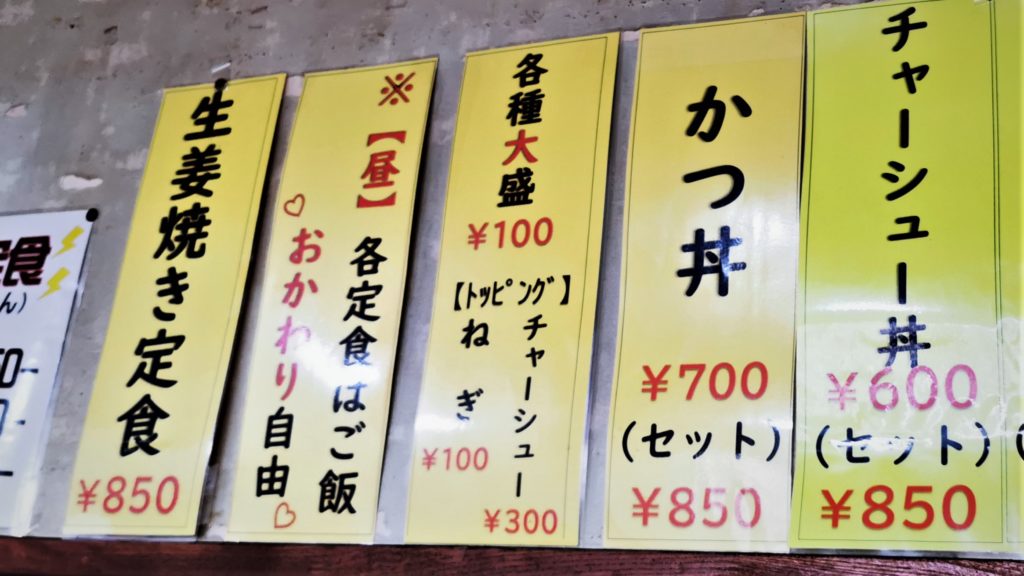 チャーシュー丼
¥600
(セット)
¥850
かつ丼
¥700
(セット)
¥850
各種大盛
¥100
【トッピング】
チャーシュー
¥300
ねぎ
¥100
※【昼】
各定食はご飯
おかわり自由
生姜焼き定食
¥850
定食